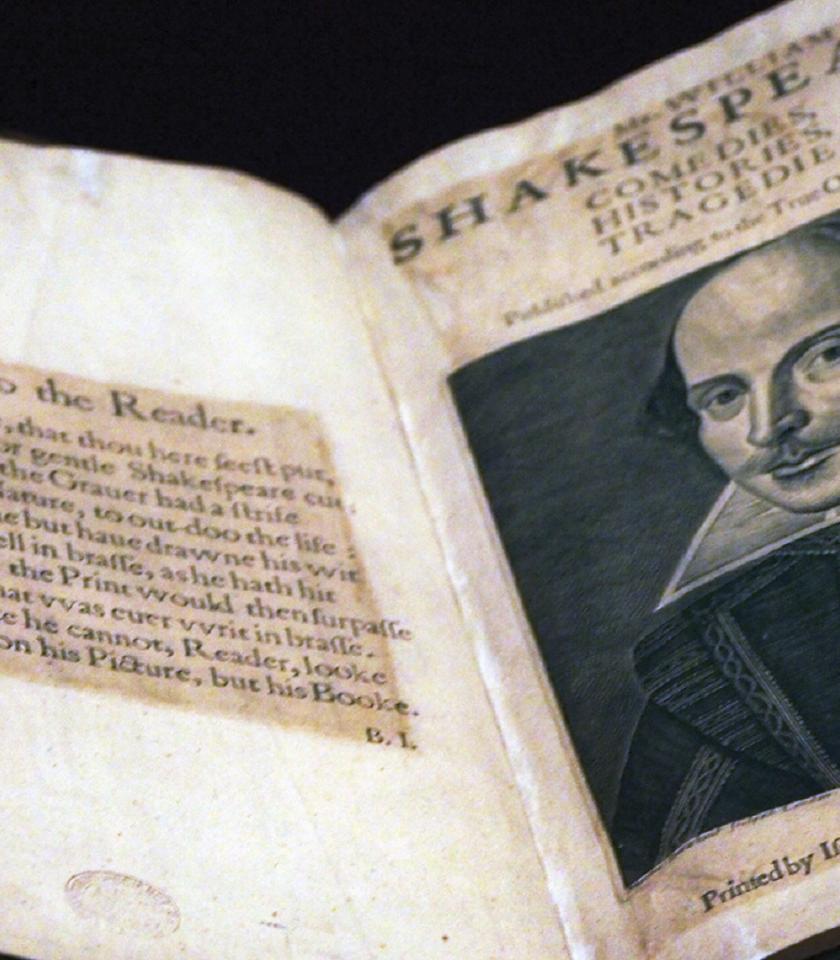 o the Reader.
, that thou here ſeeſt put,
or gentle Shakeſpeare cut,
the Grauer had a ſtrife
ature, to out-doo the life :
e but haue drawne his wit
ell in braſſe, as he hath hit
the Print would then ſurpaſſe
hat vvas euer vvrit in braſſe.
e he cannot, Reader, looke
on his Picture, but his Booke.
B. I.
Mr. WILLIAM
SHAKESPEA
COMEDIES
HISTORIES
TRAGEDIE
Publiſhed according to the True
Printed by